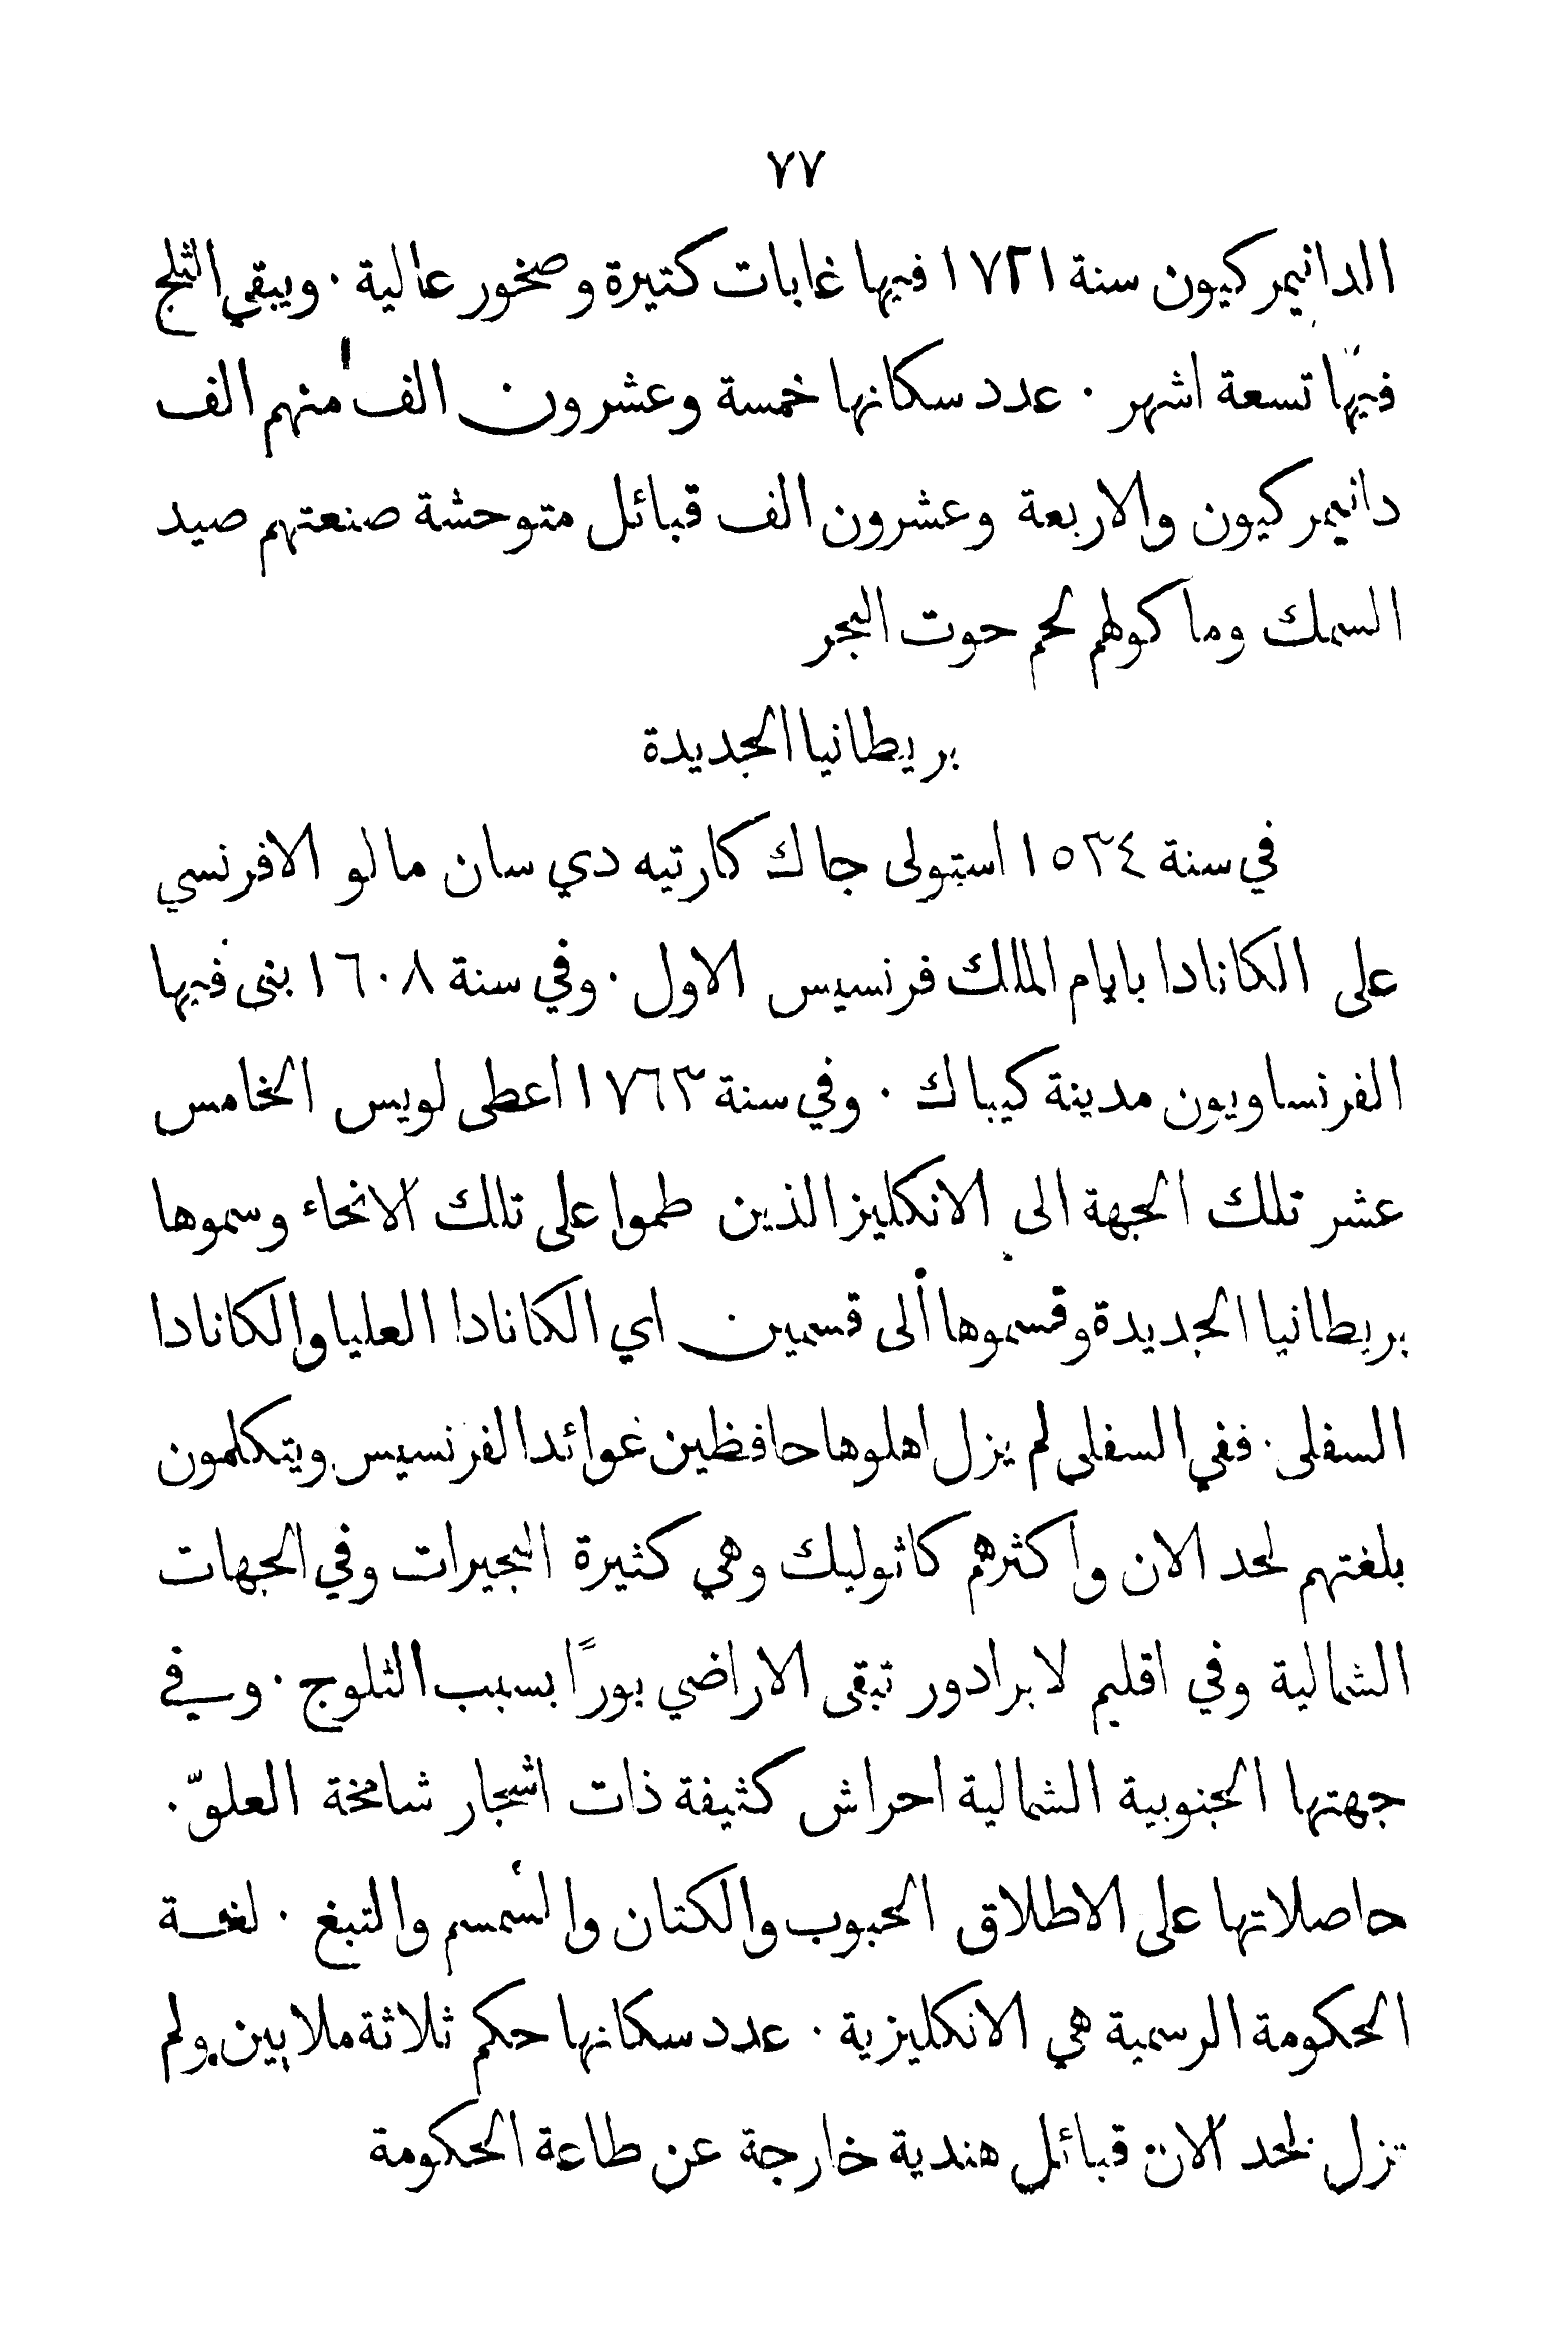 ٧٧
الدانيمركيون سنة ١٧٢١ فيها غابات كتيرة وصخور عالية ٠ ويبقي الثلج
فيها تسعة اشهر ٠ عدد سكانها خمسة وعشرون الف منهم الف
دانيمركيون والاربعة وعشرون الف قبائل متوحشة صنعتهم صيد
السمك وماكولهم لحم حوت البحر
بريطانيا الجديدة
في سنة ١٥٣٤ استولى جاك كارتيه دي سان مالو الافرنسي
على الكانادا بايام الملك فرنسيس الاول ٠ وفي سنة ١٦٠٨ بنى فيها
الفرنساويون مدينة كيباك ٠ وفي سنة ١٧٦٣ اعطى لويس الخامس
عشر تلك الجهة الى الانكليز الذين طموا على تلك الانحاء وسموها
بريطانيا الجديدة وقسموها ألى قسمين اي الكانادا العليا والكانادا
السفلى ٠ ففي السفلي لم يزل اهلوها حافظين عوائد الفرنسيس ويتكلمون
بلغتهم لحد الان واكثرهم كاثوليك وهي كثيرة البحيرات وفي الجهات
الشمالية وفي اقليم لابرادور تبقى الاراضي بورًا بسبب الثلوج ٠ وفي
جهتها الجنوبية الشمالية احراش كثيفة ذات اشجار شامخة العلوّ ٠
حاصلاتها على الاطلاق الحبوب والكتان والسمسم والتبغ ٠ لغة
الحكومة الرسمية هي الانكليزية ٠ عدد سكانها حكم ثلاثة ملايين ولم
تزل لحد الان قبائل هندية خارجة عن طاعة الحكومة